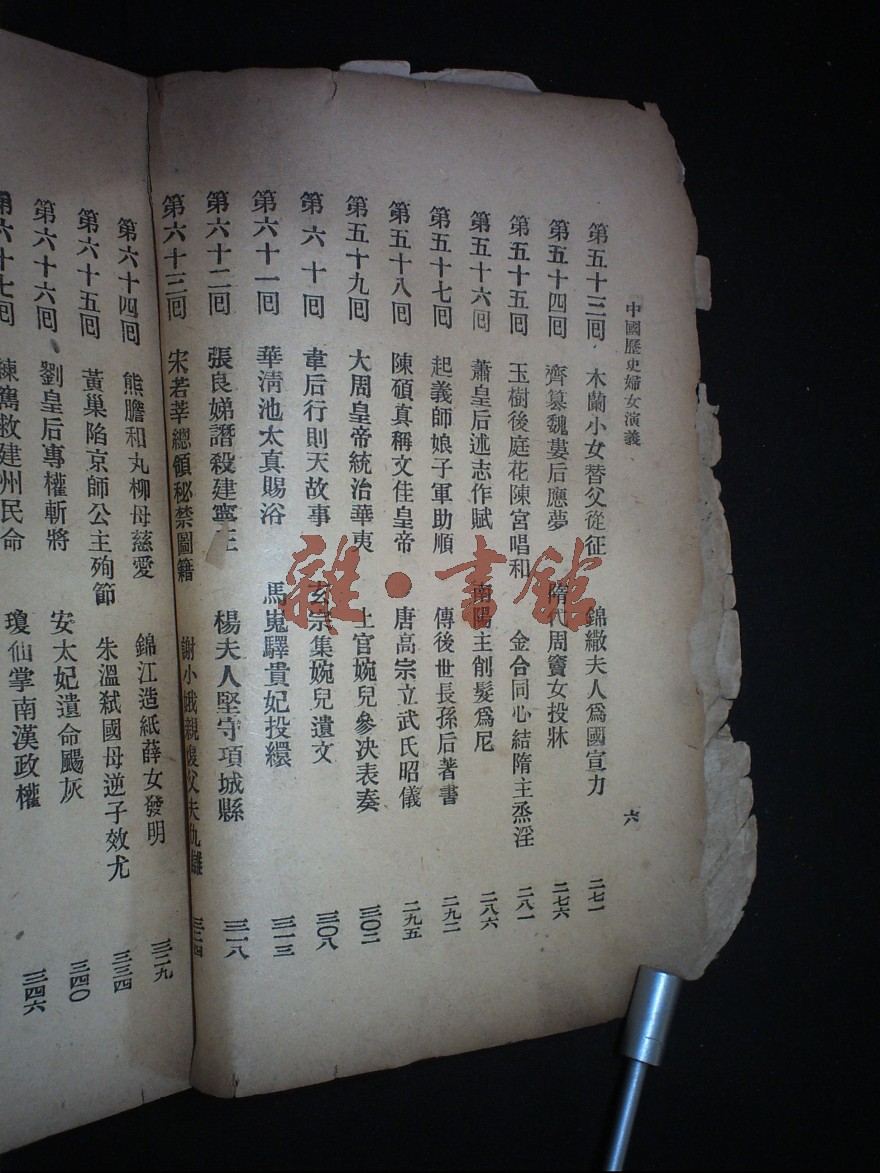 中國歷史婦女演義 六
第五十三囘 木蘭小女替父從征 錦繖夫人爲國宣力 二七一
第五十四囘 齊篡魏婁后應夢 隋代周竇女投牀 二七六
第五十五囘 玉樹後庭花陳宮唱和 金合同心結隋主烝淫 二八一
第五十六囘 蕭皇后述志作賦 南陽主削髮爲尼 二八六
第五十七囘 起義師娘子軍助順 傳後世長孫后著書 二九二
第五十八囘 陳碩真稱文佳皇帝 唐高宗立武氏昭儀 二九五
第五十九囘 大周皇帝統治華夷 上官婉兒參決表奏 三〇二
第六十囘 韋后行則天故事 玄宗集婉兒遺文 三〇八
第六十一囘 華淸池太真賜浴 馬嵬驛貴妃投繯 三一三
第六十二囘 張良娣譖殺建寧王 楊夫人堅守項城縣 三一八
第六十三囘 宋若莘總領秘禁圖籍 謝小娥親復父夫仇讎 三二四
第六十四囘 熊膽和丸柳母慈愛 錦江造紙薛女發明 三二九
第六十五囘 黃巢陷京師公主殉節 朱溫弒國母逆子效尤 三三四
第六十六囘 劉皇后專權斬將 安太妃遺命颺灰 三四〇
第六十七囘 練寯救建州民命 瓊仙掌南漢政權 三四六
雜·書館